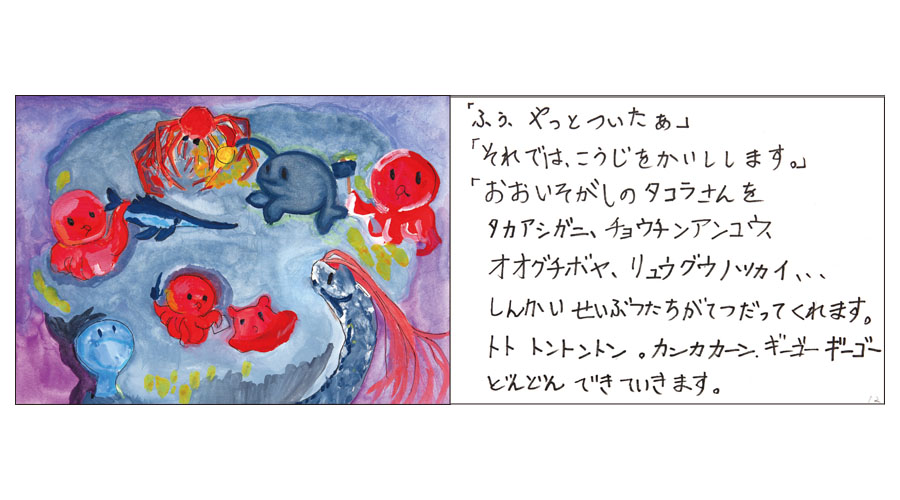 「ふぅ、やっとついたぁ」
「それでは、こうじをかいしします。」
「おおいそがしのタコラさんを
タカアシガニ、チョウチンアンコウ、
オオグチボヤ、リュウグウノツカイ、、、
しんかいせいぶつたちがてつだってくれます。
トト トントントン。カンカカーン.ギーゴー ギーゴー
どんどん できていきます。
12